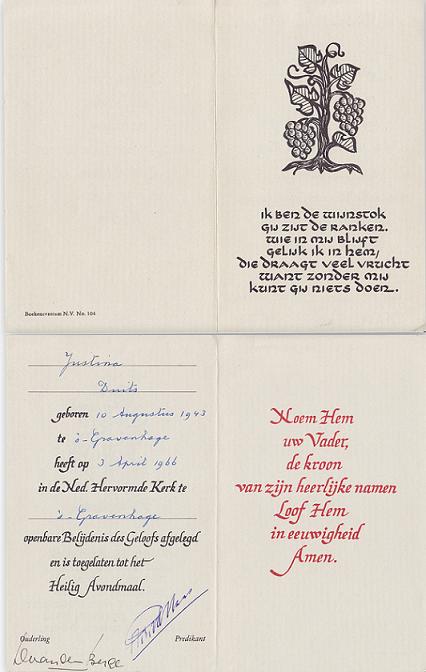 ik ben de wijnstok
gij zijt de ranken.
wie in mij blijft
gelijk ik in hem,
die draagt veel vrucht
want zonder mij
kunt gij niets doen.
Boekencentrum N.V. No. 104
Justina
Duits
geboren 10 Augustus 1943
te 's-Gravenhage
heeft op 3 April 1966
in de Ned. Hervormde Kerk te
's-Gravenhage
openbare Belijdenis des Geloofs afgelegd
en is toegelaten tot het
Heilig Avondmaal.
Ouderling
Predikant
Noem Hem
uw Vader,
de kroon
van zijn heerlijke namen
Loof Hem
in eeuwigheid
Amen.